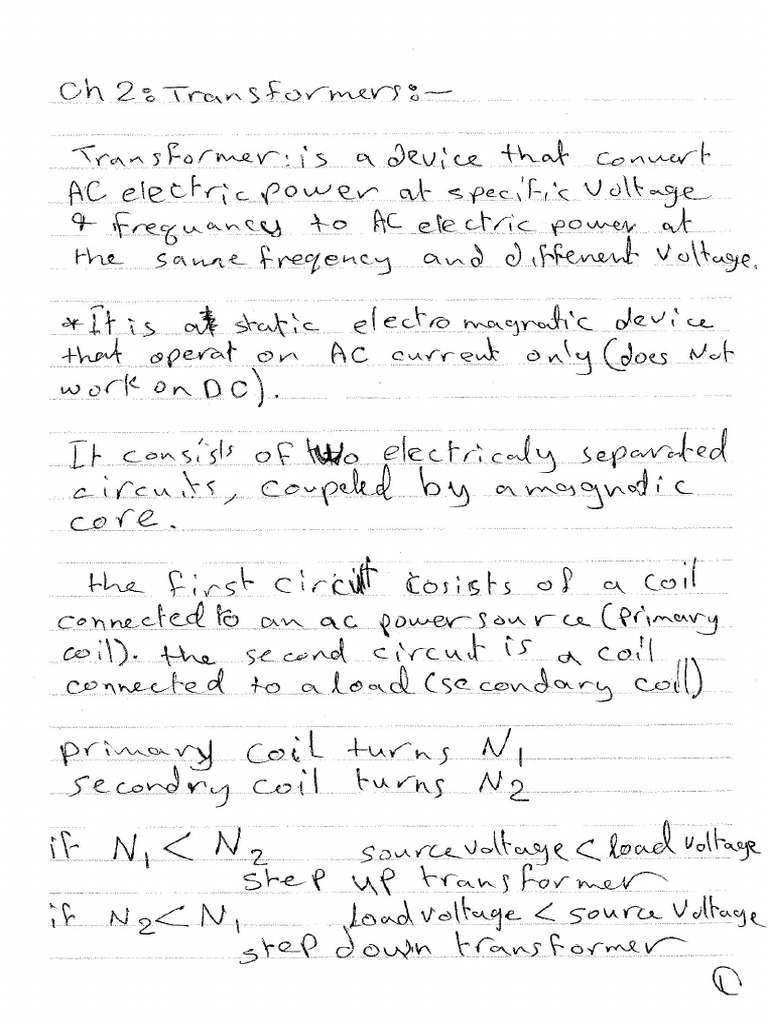 Ch 2: Transformers:-
Transformer: is a device that convert
AC electric power at specific voltage
& frequancy to AC electric power at
the same freqency and different voltage.
*It is a static electromagnatic device
that operat on AC current only (does Not
work on DC).
It consists of two electricaly separated
circuits, coupeled by a magnatic
core.
the first circuit cosists of a coil
connected to an ac power source (primary
coil). the second circut is a coil
connected to a load (secondary coil)
primary coil turns N1
secondry coil turns N2
if N1 < N2 source voltage < load voltage
step up transformer
if N2 < N1 load voltage < source voltage
step down transformer
1